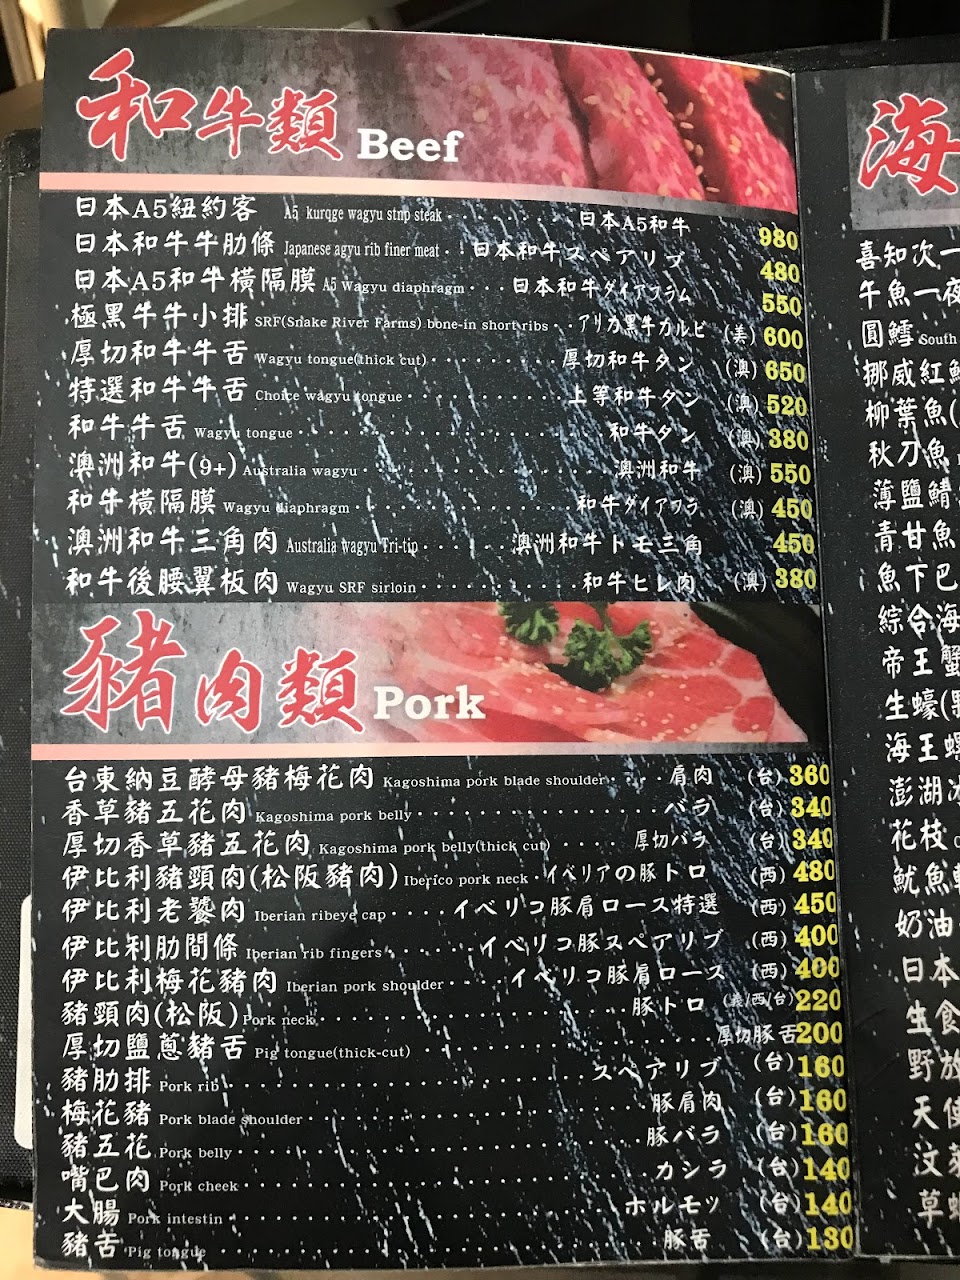 和牛類 Beef
日本A5紐約客 A5 kurqge wagyu stnp steak 日本A5和牛 980
日本和牛牛肋條 Japanese agyu rib finer meat 日本和牛スペアリブ 480
日本A5和牛橫隔膜 A5 Wagyu diaphragm 日本和牛ダイアフラム 550
極黑牛牛小排 SRF(Snake River Farms) bone-in short ribs アリカ黑牛カルビ (美) 600
厚切和牛牛舌 Wagyu tongue(thick cut) 厚切和牛タン (澳) 650
特選和牛牛舌 Choice wagyu tongue 上等和牛タン (澳) 520
和牛牛舌 Wagyu tongue 和牛タン (澳) 380
澳洲和牛(9+) Australia wagyu 澳洲和牛 (澳) 550
和牛橫隔膜 Wagyu diaphragm 和牛ダイアフラ (澳) 450
澳洲和牛三角肉 Australia wagyu Tri-tip 澳洲和牛トモ三角 450
和牛後腰翼板肉 Wagyu SRF sirloin 和牛ヒレ肉 (澳) 380
豬肉類 Pork
台東納豆酵母豬梅花肉 Kagoshima pork blade shoulder 肩肉 (台) 360
香草豬五花肉 Kagoshima pork belly バラ (台) 340
厚切香草豬五花肉 Kagoshima pork belly(thick cut) 厚切バラ (台) 340
伊比利豬頸肉(松阪豬肉) Iberico pork neck イベリアの豚トロ (西) 480
伊比利老饕肉 Iberian ribeye cap イベリコ豚肩ロース特選 (西) 450
伊比利肋間條 Iberian rib fingers イベリコ豚スペアリブ (西) 400
伊比利梅花豬肉 Iberian pork shoulder イベリコ豚肩ロース (西) 400
豬頸肉(松阪) Pork neck 豚トロ /西/台) 220
厚切鹽蔥豬舌 Pig tongue(thick-cut) 厚切豚舌 200
豬肋排 Pork rib スペアリブ (台) 160
梅花豬 Pork blade shoulder 豚肩肉 (台) 160
豬五花 Pork belly 豚バラ (台) 160
嘴巴肉 Pork cheek カシラ (台) 140
大腸 Pork intestin ホルモツ (台) 140
豬舌 Pig tongue 豚舌 (台) 130
海
喜知次一
午魚一夜
圓鱈 South
挪威紅
柳葉魚(
秋刀魚
薄鹽鯖
青甘魚
魚下巴
綜合海
帝王蟹
生蠔(
海王螺
澎湖
花枝
魷魚
奶油
日本
生食
野放
天使
汶萊
草蝦